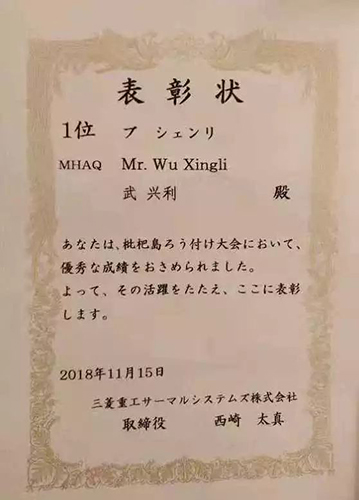 表彰状
1位 ブ シェンリ
MHAQ Mr. Wu Xingli
武 兴利 殿
あなたは、枇杷島ろう付け大会において、
優秀な成績をおさめられました。
よって、その活躍をたたえ、ここに表彰
します。
2018年11月15日
三菱重工サーマルシステムズ株式会社
取締役 西崎 太真